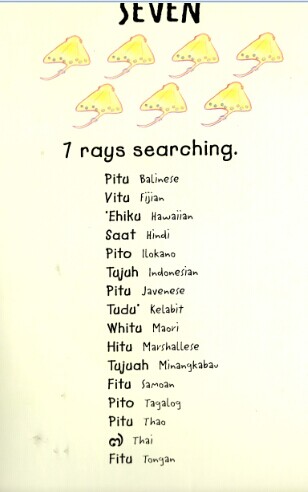 SEVEN
7 rays searching.
Pitu Balinese
Vitu Fijian
'Ehiku Hawaiian
Saat Hindi
Pito Ilokano
Tujuh Indonesian
Pitu Javenese
Tudu' Kelabit
Whitu Maori
Hitu Marshallese
Tujuah Minangkabau
Fitu Samoan
Pito Tagalog
Pitu Thao
๗ Thai
Fitu Tongan